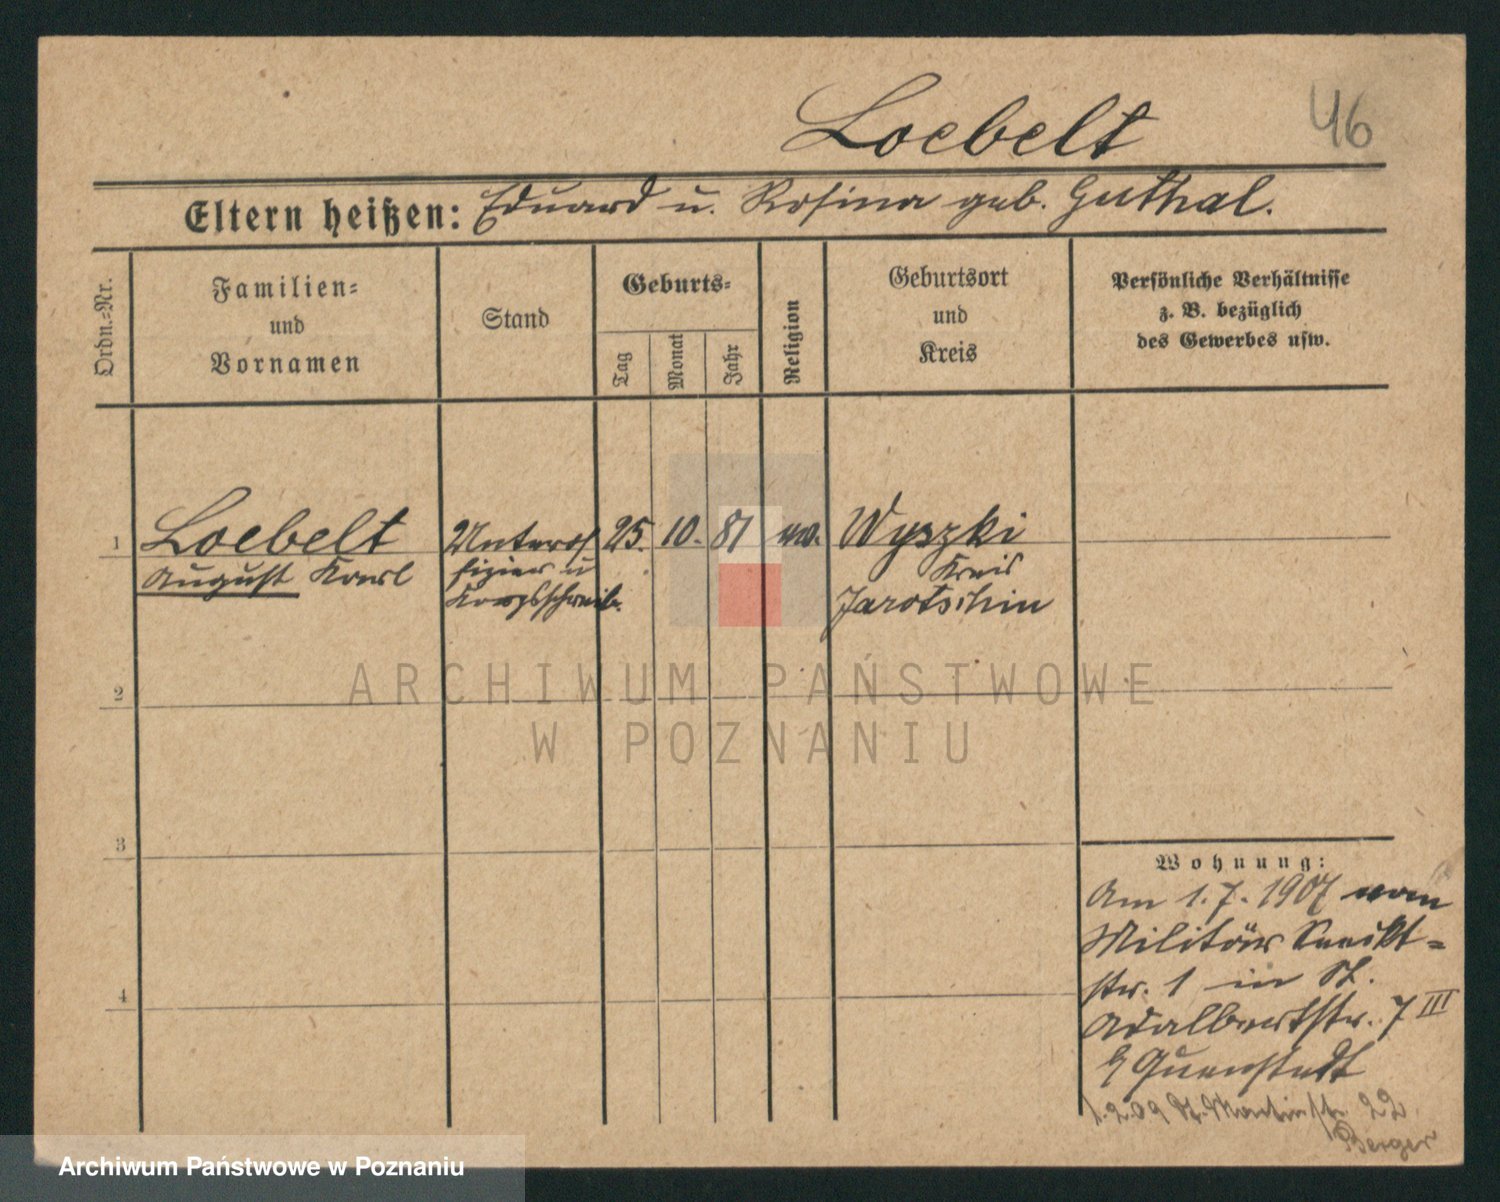 Loebelt
46
Eltern heißen: Eduard u. Rosina geb. Guthal.
Ordn.-Nr.
Familien-
und
Vornamen
Stand
Geburts-
Tag
Monat
Jahr
Religion
Geburtsort
und
Kreis
Persönliche Verhältnisse
z. B. bezüglich
des Gewerbes usw.
1
Loebelt
August Karl
Unterof
fizier u
Korpsschreib.
25.
10.
81
ev.
Wyszki
Kreis
Jarotschin
ARCHIWUM PAŃSTWOWE
W POZNANIU
2
3
4
Wohnung:
Am 1.7.1907 vom
Militär
str. 1 in St.
Adalbertstr. 7 III
Quenstedt
1.2.09 St. Martinstr. 22
Berger
Archiwum Państwowe w Poznaniu